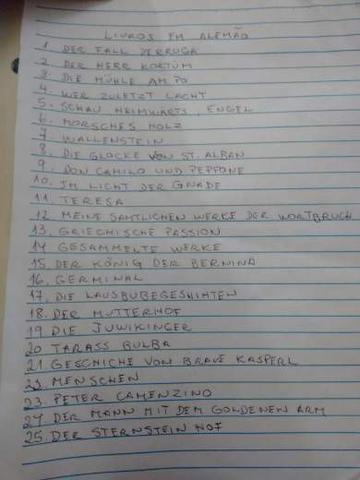 LIVROS EM ALEMÃO
1. DER FALL DERRUGA
2. DER HERR KORTÜM
3. DIE MÜHLE AM PO
4. WER ZULETZT LACHT
5. SCHAU HEIMWÄRTS, ENGEL
6. MORSCHES HOLZ
7. WALLENSTEIN
8. DIE GLOCKE VON ST. ALBAN
9. DON CAMILO UND PEPPONE
10. IM LICHT DER GNADE
11. TERESA
12. MEINE SAMTLICHEN WERKE DER WORTBRUCH
13. GRIECHISCHE PASSION
14 GESAMMELTE WERKE
15. DER KÖNIG DER BERNINA
16. GERMINAL
17. DIE LAUSBUBEGESHIHTEN
18. DER MUTTERHOF
19 DIE JUWIKINGER
20 TARASS BULBA
21 GESCHICHE VON BRAVE KASPERL
22. MENSCHEN
23. PETER CAMENZIND
24 DER MANN MIT DEM GOLDENEN ARM
25. DER STERNSTEIN HOF